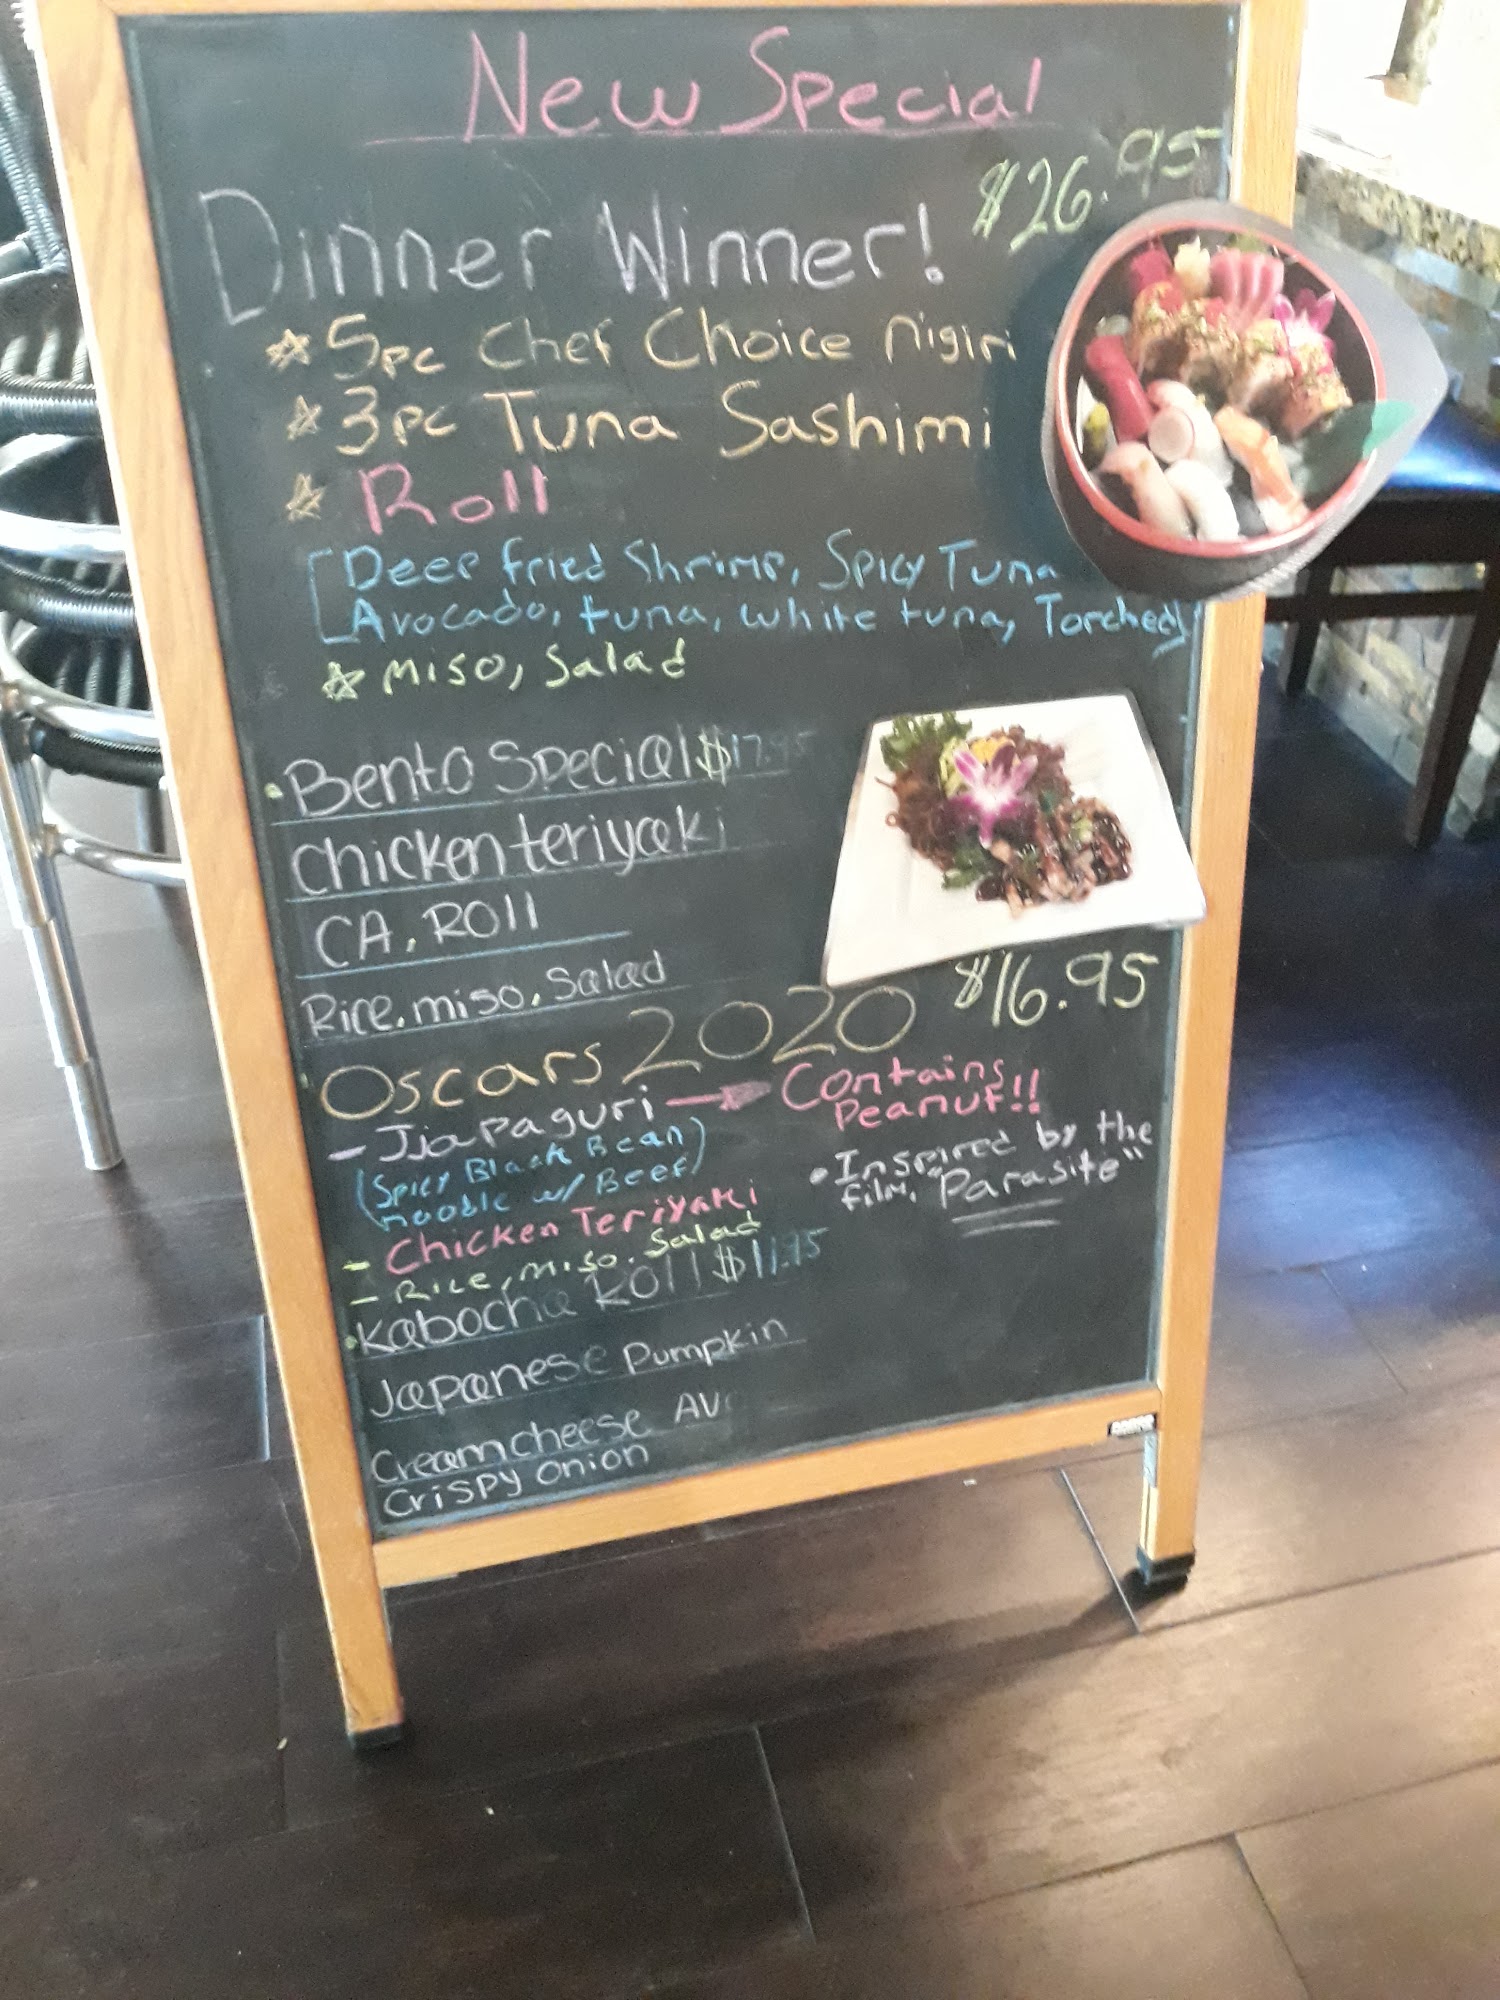 New Special
$26.95
Dinner Winner!
5pc Chef Choice Nigiri
3pc Tuna Sashimi
Roll
[Deep fried Shrimp, Spicy Tuna
Avocado, tuna, white tuna, Torched]
Miso, Salad
Bento Special $17.95
Chicken teriyaki
CA. Roll
Rice. miso. Salad
$16.95
Oscars 2020
- Jjapaguri → Contains
Peanut!!
(Spicy Black Bean
noodle w/ Beef)
• Inspired by the
film, "Parasite"
- Chicken Teriyaki
- Rice, Miso. Salad
Kabocha Roll $11.95
Japanese Pumpkin
Creamcheese
Crispy Onion